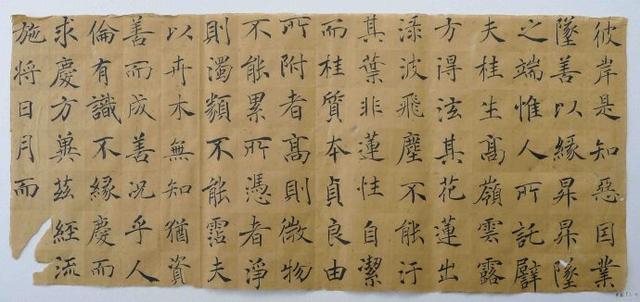 彼岸是知惡囙業
墜善以緣昇昇墜
之端惟人所託譬
夫桂生高嶺雲露
方得泫其花蓮出
淥波飛塵不能汙
其葉非蓮性自潔
而桂質本貞良由
所附者高則微物
不能累所憑者淨
則濁類不能霑夫
以卉木無知猶資
善而成善況乎人
倫有識不緣慶而
求慶方冀茲經流
施將日月而